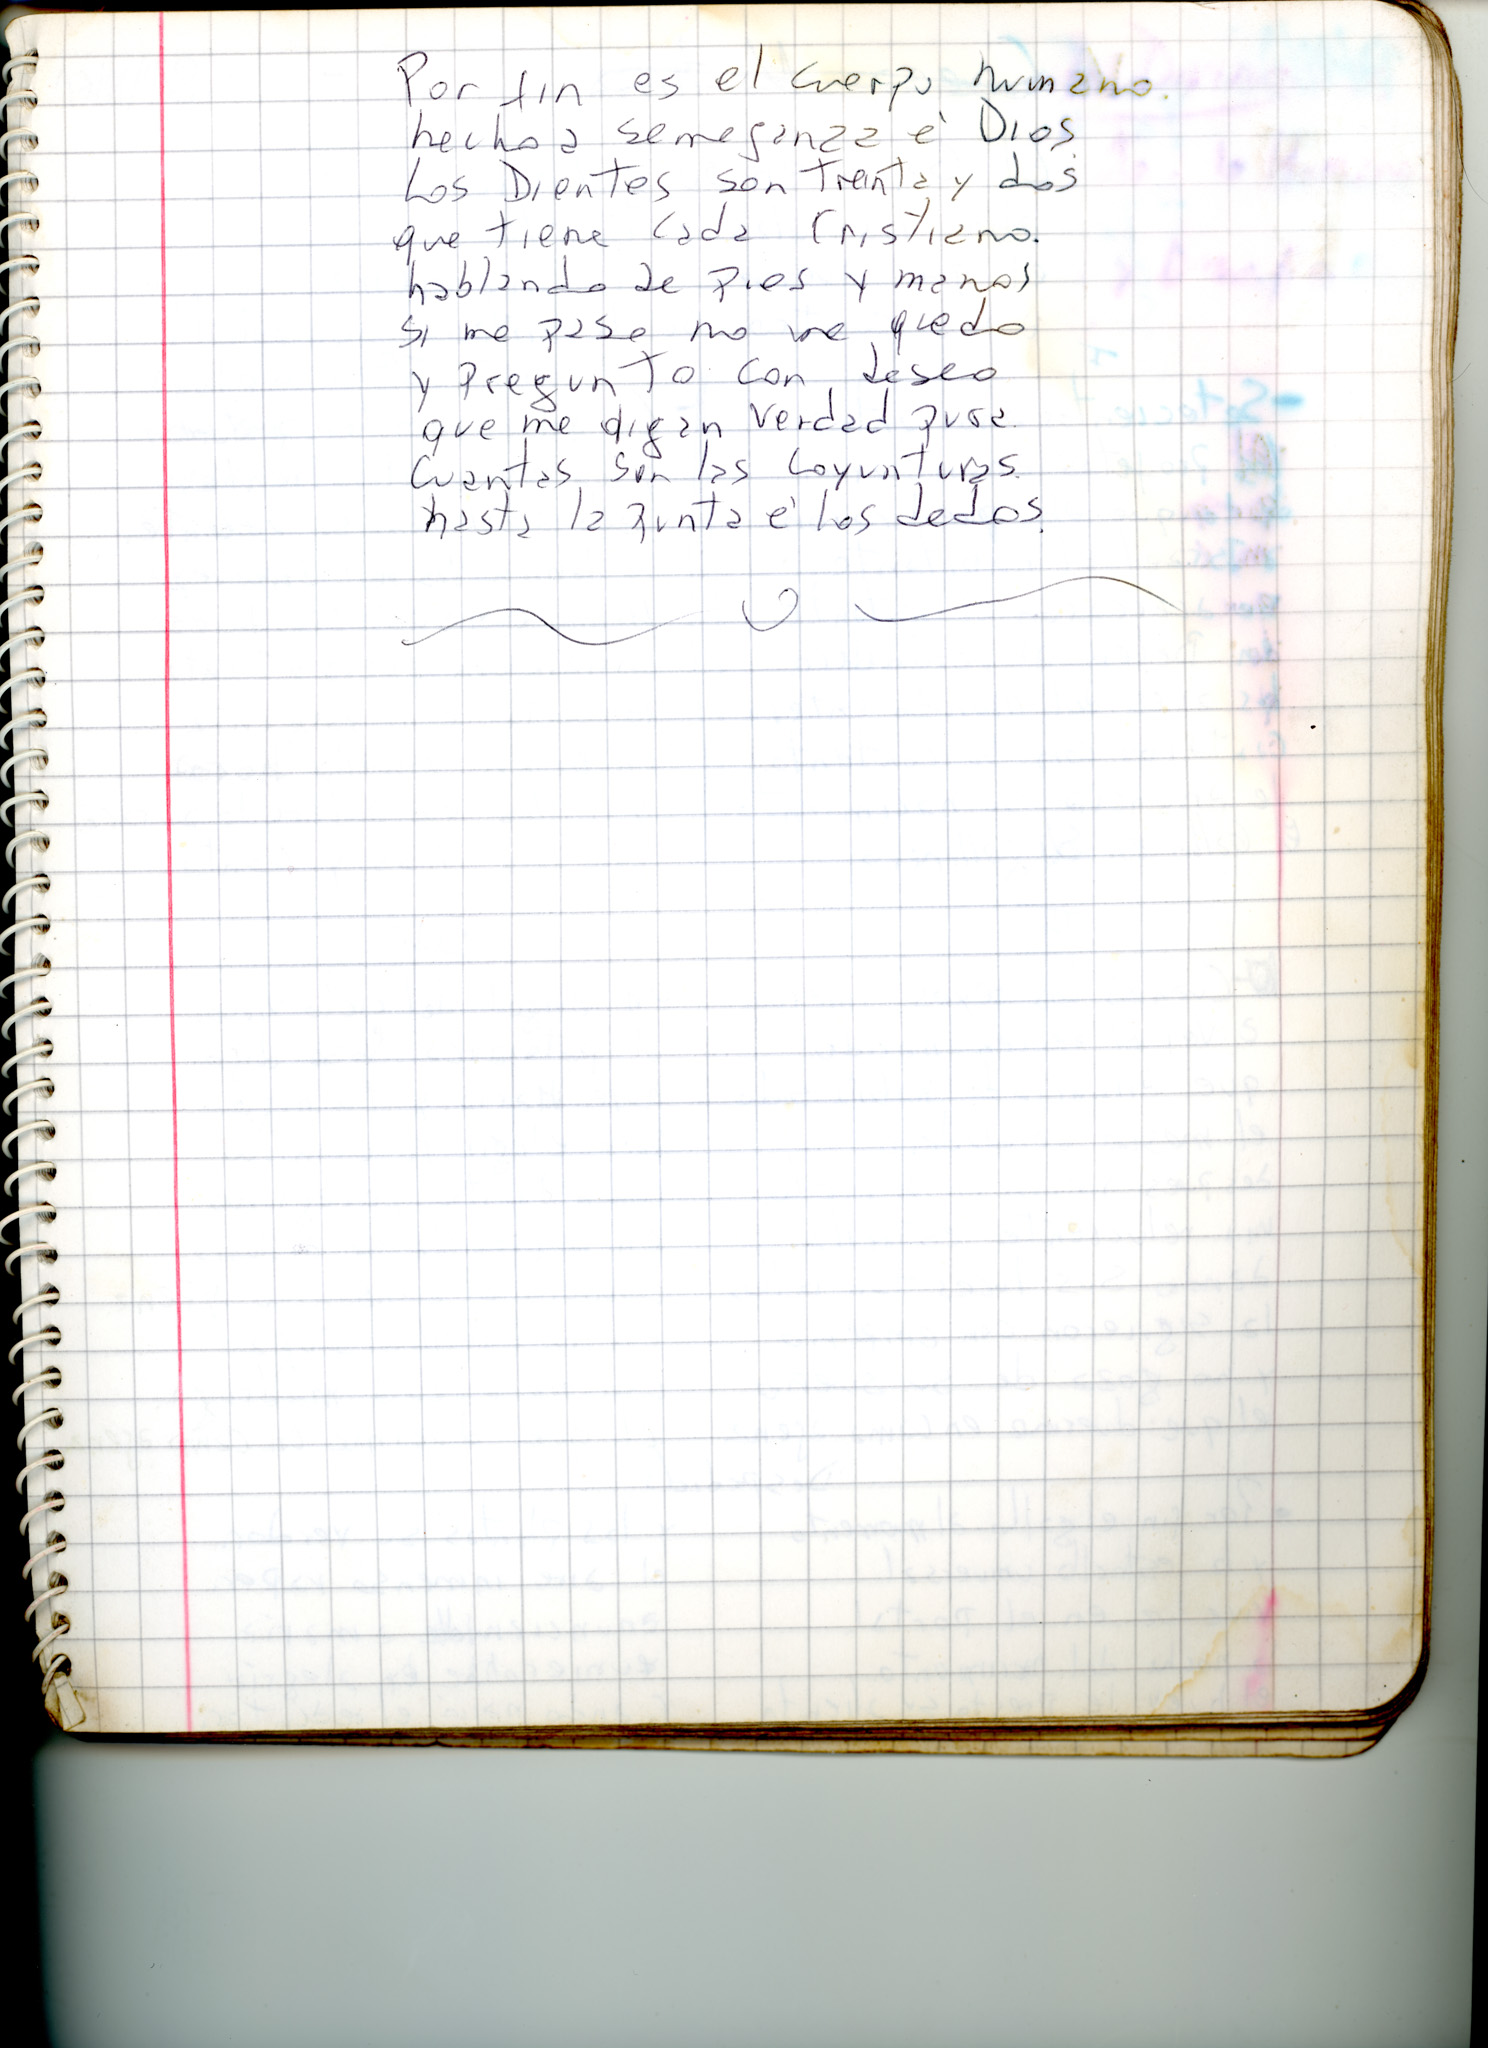 Por fin es el cuerpo humano.
hecho a semeganza e' Dios.
Los Dientes son treinta y dos
que tiene cada Cristiano.
hablando de pies y manos
si me pase no me quedo
y pregunto con deseo
que me digan verdad pura.
Cuantas son las coyunturas.
hasta la punta e' los dedos.